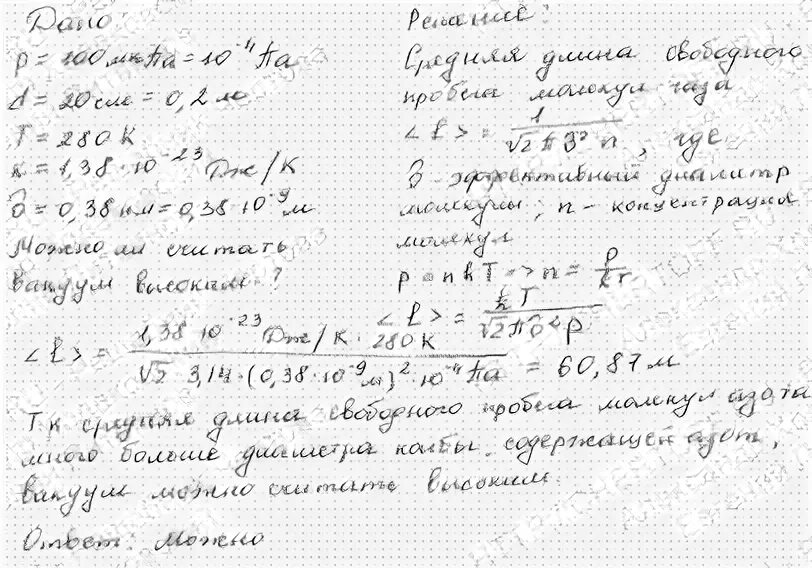 Дано
p = 100 мкПа = 10⁻⁴ Па
d = 20 см = 0,2 м
T = 280 К
k = 1,38 · 10⁻²³ Дж/К
δ = 0,38 нм = 0,38 · 10⁻⁹ м
Можно ли считать
вакуум высоким?
Решение:
Средняя длина свободного
пробега молекул газа
<ℓ> = 1/(√2 π δ² n), где
δ - эффективный диаметр
молекулы; n - концентрация
молекул
p = nkT => n = p/kT
<ℓ> = kT/(√2 π δ² p)
<ℓ> = (1,38 · 10⁻²³ Дж/К · 280 К)/(√2 · 3,14 · (0,38 · 10⁻⁹ м)² · 10⁻⁴ Па) = 60,87 м
Т к средняя длина свободного пробега молекул азота
много больше диаметра колбы, содержащей азот,
вакуум можно считать высоким.
Ответ: Можно